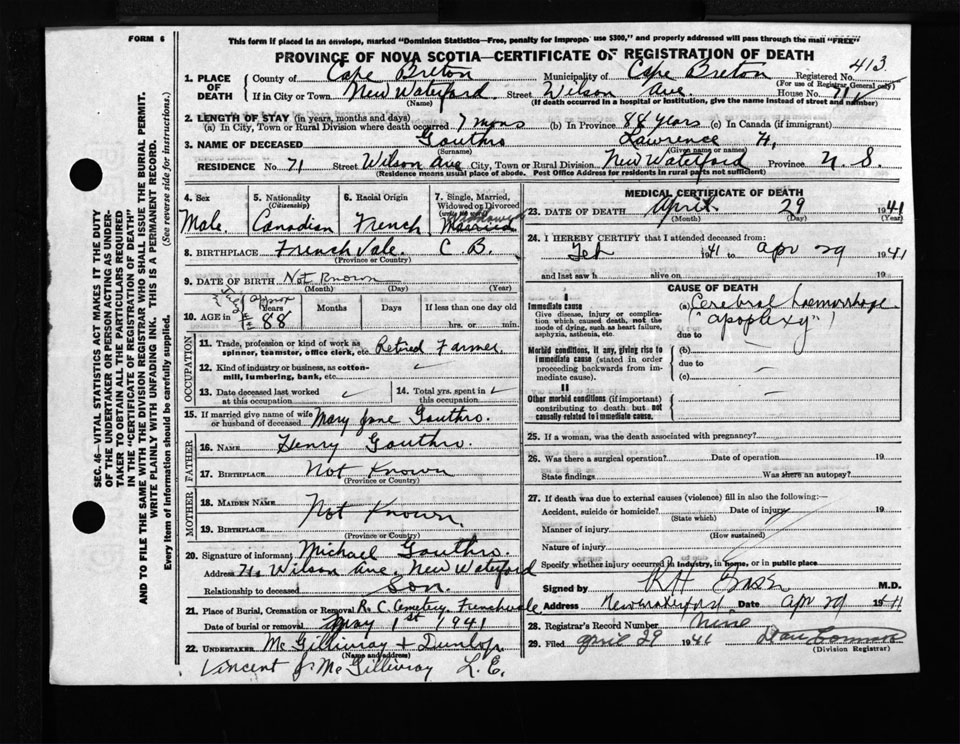 FORM 6
This form if placed in an envelope, marked "Dominion Statistics—Free, penalty for improper use $300," and properly addressed will pass through the mail "FREE"
PROVINCE OF NOVA SCOTIA—CERTIFICATE OF REGISTRATION OF DEATH
1. PLACE OF DEATH
County of Cape Breton Municipality of Cape Breton Registered No. 413
(For use of Registrar General only)
If in City or Town New Waterford Street Wilson Ave. House No. 71
(Name) (If death occurred in a hospital or institution, give the name instead of street and number)
2. LENGTH OF STAY (in years, months and days)
(a) In City, Town or Rural Division where death occurred 7 mons (b) In Province 88 years (c) In Canada (if immigrant)
3. NAME OF DECEASED Gouthro Lawrence H.
(Surname) (Given name or names)
RESIDENCE No. 71 Street Wilson Ave City, Town or Rural Division New Waterford Province N. S.
(Residence means usual place of abode. Post Office Address for residents in rural parts not sufficient)
4. Sex Male
5. Nationality (Citizenship) Canadian
6. Racial Origin French
7. Single, Married, Widowed or Divorced Married
8. BIRTHPLACE French Vale C B.
(Province or Country)
9. DATE OF BIRTH Not Known
(Month) (Day) (Year)
10. AGE in Years 88 Months Days If less than one day old
hrs. or min.
OCCUPATION
11. Trade, profession or kind of work as spinner, teamster, office clerk, etc. Retired Farmer.
12. Kind of industry or business, as cotton-mill, lumbering, bank, etc.
13. Date deceased last worked at this occupation
14. Total yrs. spent in this occupation
15. If married give name of wife or husband of deceased Mary Jane Gouthro.
FATHER
16. NAME Henry Gouthro.
17. BIRTHPLACE Not Known
(Province or Country)
MOTHER
18. MAIDEN NAME
Not Known.
19. BIRTHPLACE
(Province or Country)
20. Signature of informant Michael Gouthro.
Address 71, Wilson Ave. New Waterford
Relationship to deceased Son.
21. Place of Burial, Cremation or Removal R. C. Cemetery Frenchvale
Date of burial or removal May 1st 1941
22. UNDERTAKER McGillivray + Dunlop
(Name and address)
Vincent J. McGillivray L. E.
MEDICAL CERTIFICATE OF DEATH
23. DATE OF DEATH April 29 1941
(Month) (Day) (Year)
24. I HEREBY CERTIFY that I attended deceased from:
Feb 1941 to Apr 29 1941
and last saw h alive on 19
CAUSE OF DEATH
I
Immediate cause
Give disease, injury or complication which caused death, not the mode of dying, such as heart failure, asphyxia, asthenia, etc.
(a) Cerebral haemorrhage
"apoplexy"
due to
Morbid conditions, if any, giving rise to immediate cause (stated in order proceeding backwards from immediate cause).
(b)
due to
(c)
II
Other morbid conditions (if important) contributing to death but not causally related to immediate cause.
25. If a woman, was the death associated with pregnancy?
26. Was there a surgical operation? Date of operation 19
State findings Was there an autopsy?
27. If death was due to external causes (violence) fill in also the following:—
Accident, suicide or homicide? Date of injury 19
(State which)
Manner of injury
(How sustained)
Nature of injury
Specify whether injury occurred in industry, in home, or in public place
Signed by M.D.
Address New Waterford Date Apr 29 1941
28. Registrar's Record Number Nine
29. Filed April 29 1941
(Division Registrar)
SEC. 46—VITAL STATISTICS ACT MAKES IT THE DUTY
OF THE UNDERTAKER OR PERSON ACTING AS UNDER-
TAKER TO OBTAIN ALL THE PARTICULARS REQUIRED
IN THE "CERTIFICATE OF REGISTRATION OF DEATH"
AND TO FILE THE SAME WITH THE DIVISION REGISTRAR WHO SHALL ISSUE THE BURIAL PERMIT.
WRITE PLAINLY WITH UNFADING INK. THIS IS A PERMANENT RECORD.
Every item of information should be carefully supplied. (See reverse side for instructions.)